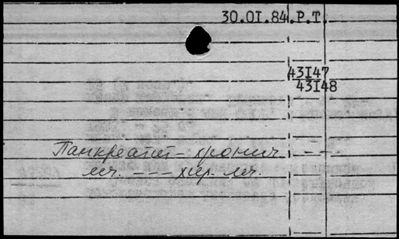 30.01.84.Р.Т.
43I47
43I48
Панкреатит – хронич. – –
леч. – – – хир. леч.